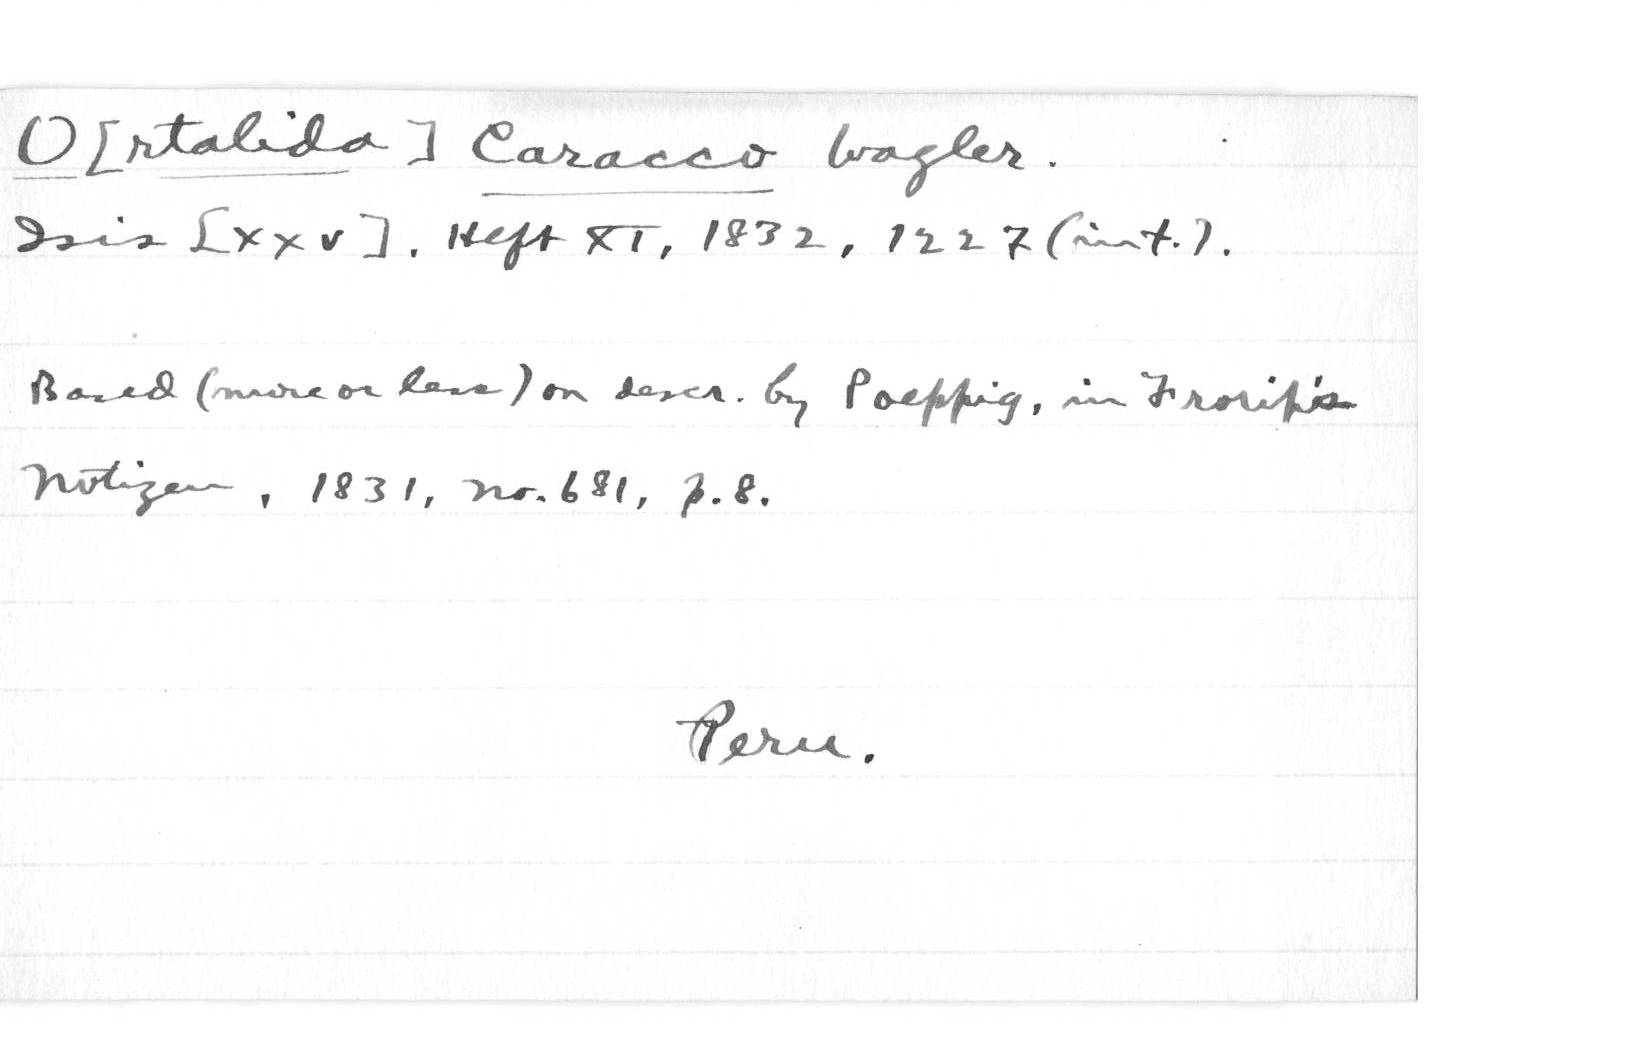 O[rtalida] Caracco Wagler.
Isis [XXV]. Heft XI, 1832, 1227 (int.).
Based (more or less) on descr. by Poeppig, in Froriep's
Notizen, 1831, no. 681, p. 8.
Peru.